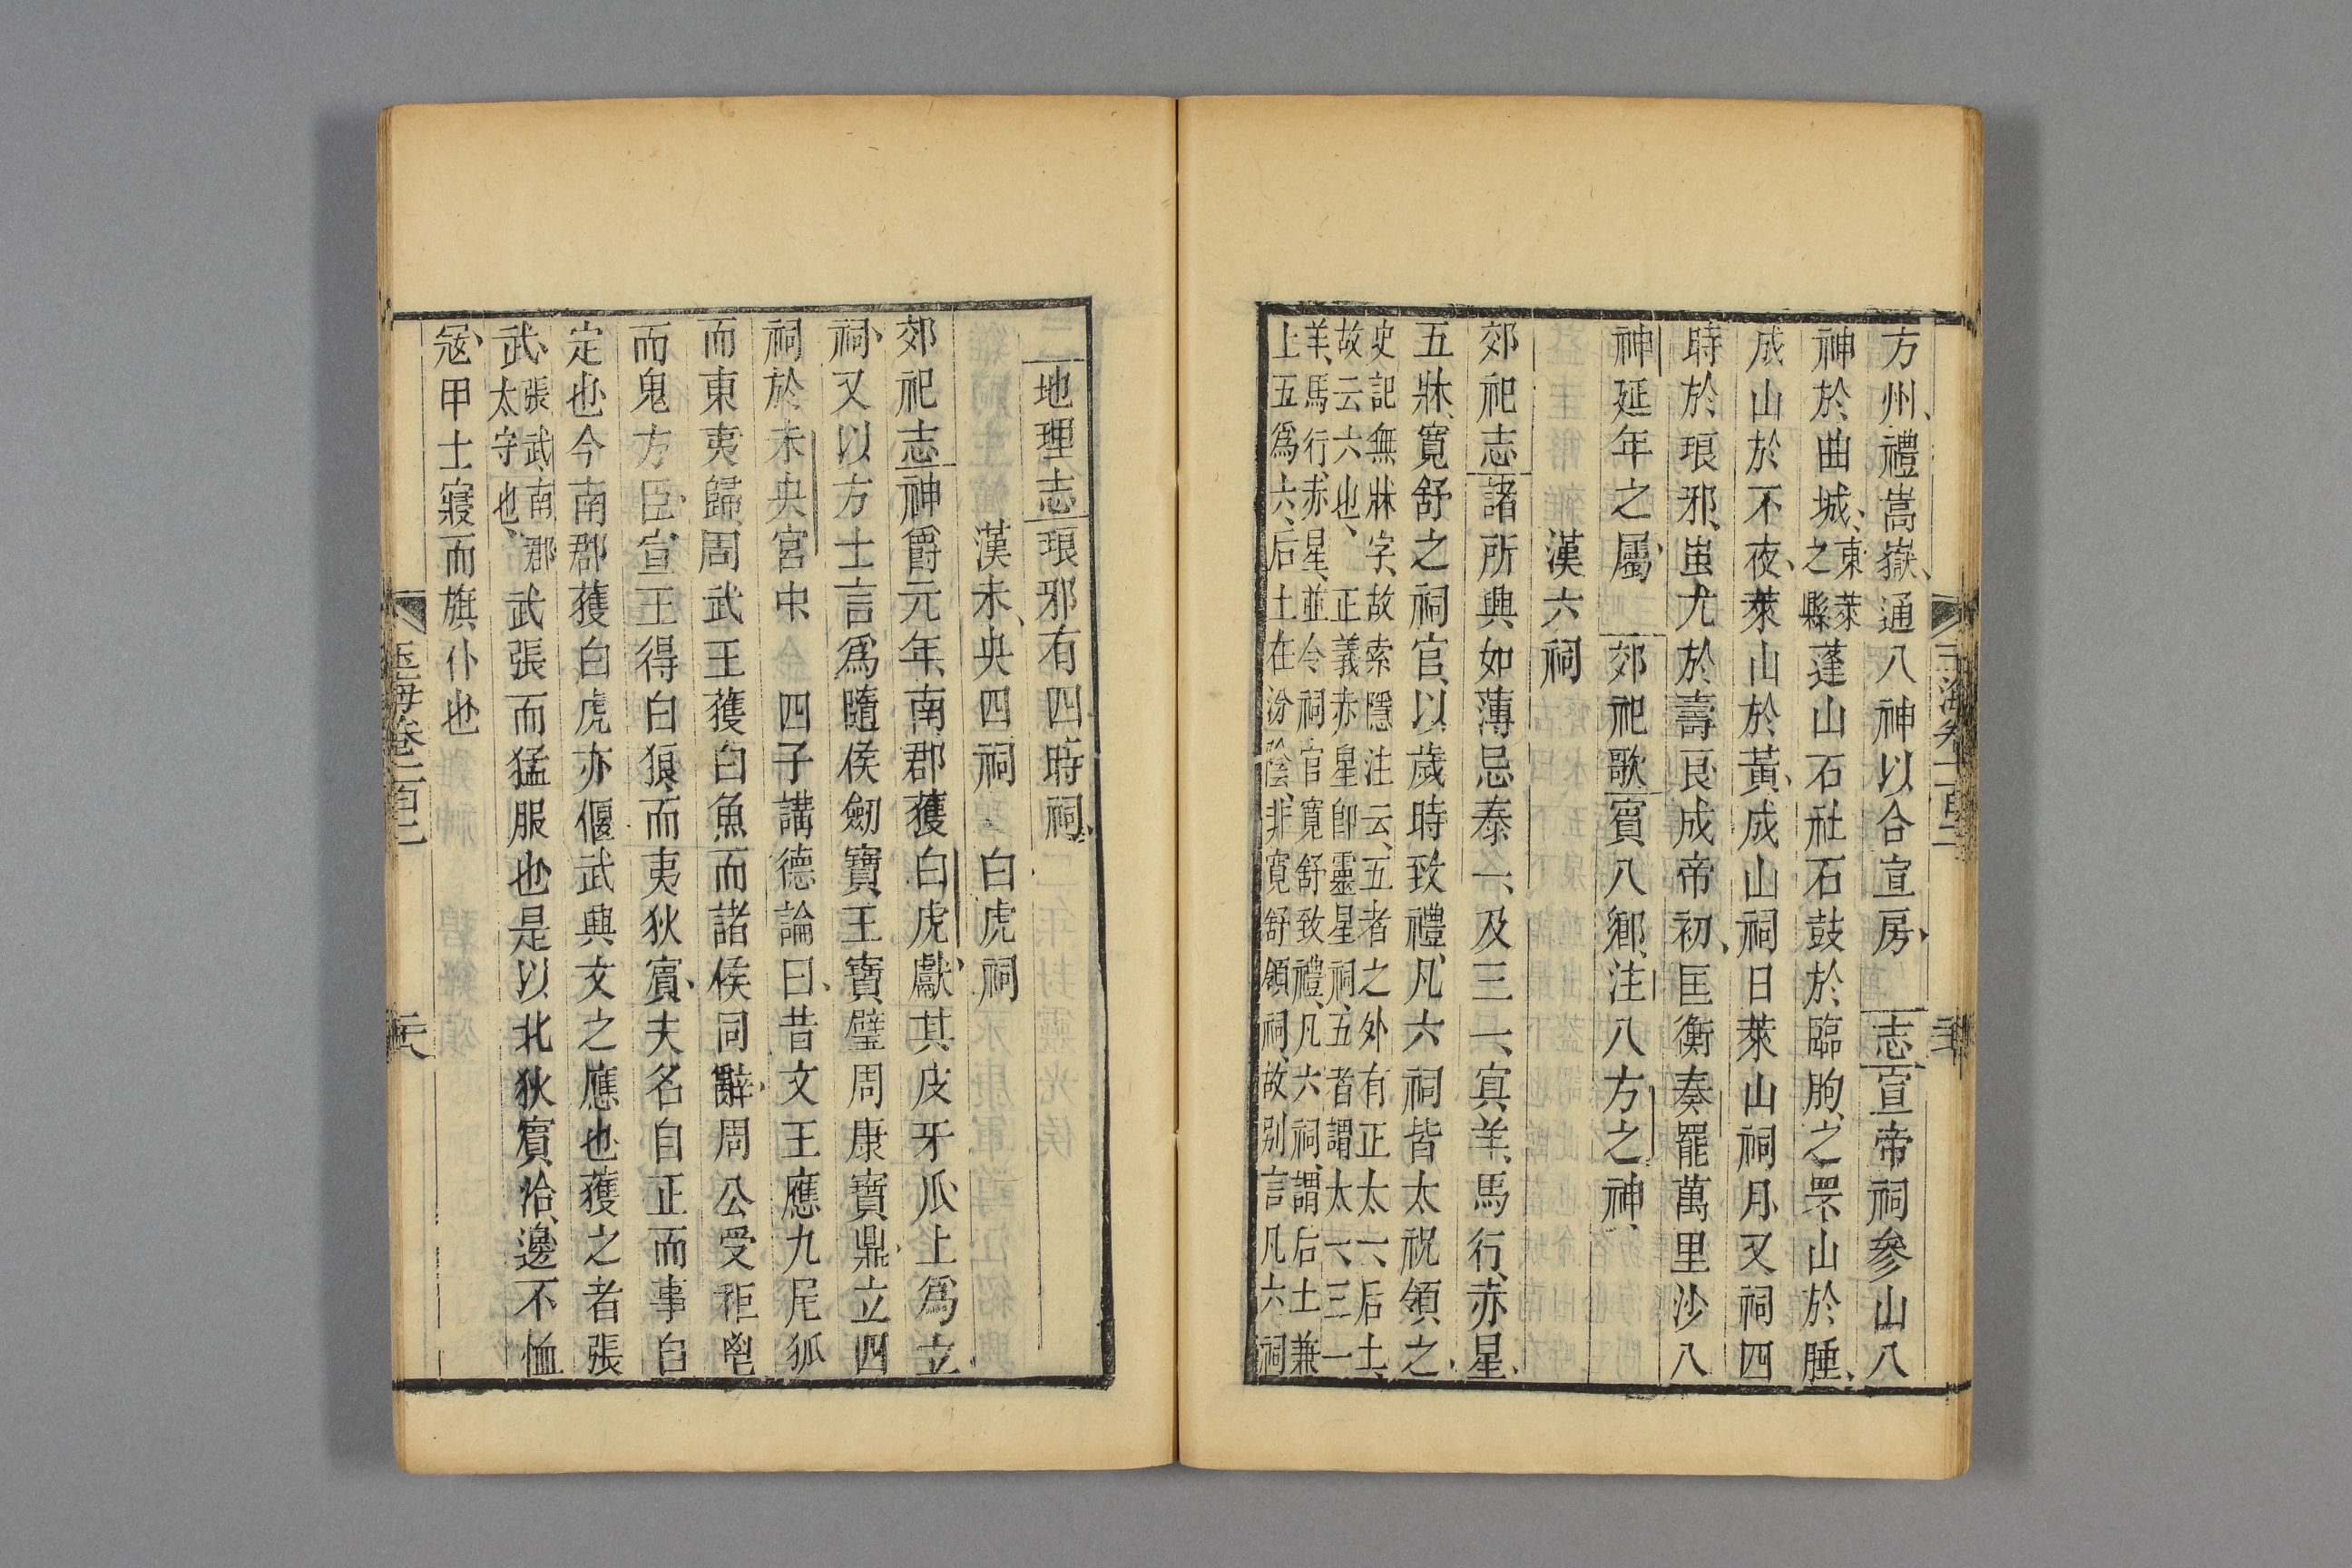 玉海卷一百二
方州禮嵩嶽通八神以合宣房 志宣帝祠參山八
神於曲城東萊之縣蓬山石社石鼓於臨朐之罘山於腄
成山於不夜萊山於黃成山祠日萊山祠月又祠四
時於琅邪蚩尤於壽良成帝初匡衡奏罷萬里沙八
神延年之屬 郊祀歌賓八鄉注八方之神
漢六祠
郊祀志諸所興如薄忌泰一及三一㝠羊馬行赤星
五牀寬舒之祠官以歲時致禮凡六祠皆太祝領之
史記無牀字故索隱注云五者之外有正太一后土
故云六也 正義赤星卽靈星祠五者謂太一三一
羊馬行赤星並令祠官寬舒致禮凡六祠謂后土兼
上五爲六后土在汾陰非寬舒領祠故别言凡六祠
地理志琅邪有四時祠
漢未央四祠 白虎祠
郊祀志神爵元年南郡獲白虎獻其皮牙爪上爲立
祠又以方士言爲隨侯劒寶玉寶璧周康寶鼎立四
祠於未央宮中 四子講德論曰昔文王應九尾狐
而東夷歸周武王獲白魚而諸侯同辭周公受秬鬯
而鬼方臣宣王得白狼而夷狄賓夫名自正而事自
定也今南郡獲白虎亦偃武興文之應也獲之者張
武張武南郡太守也武張而猛服也是以北狄賓洽邊不恤
寇甲士寢而旗仆也
玉海卷一百二